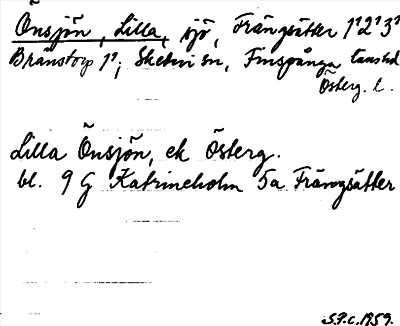 Önsjön, Lilla, sjö, Frängsätter 1¹2¹3¹
Bränstorp 1¹, Skedevi sn, Finspånga länshd
Österg. l.
Lilla Önsjön, ek Österg.
bl. 9 G Katrineholm 5a Frängsätter
S.P.c. 1959.